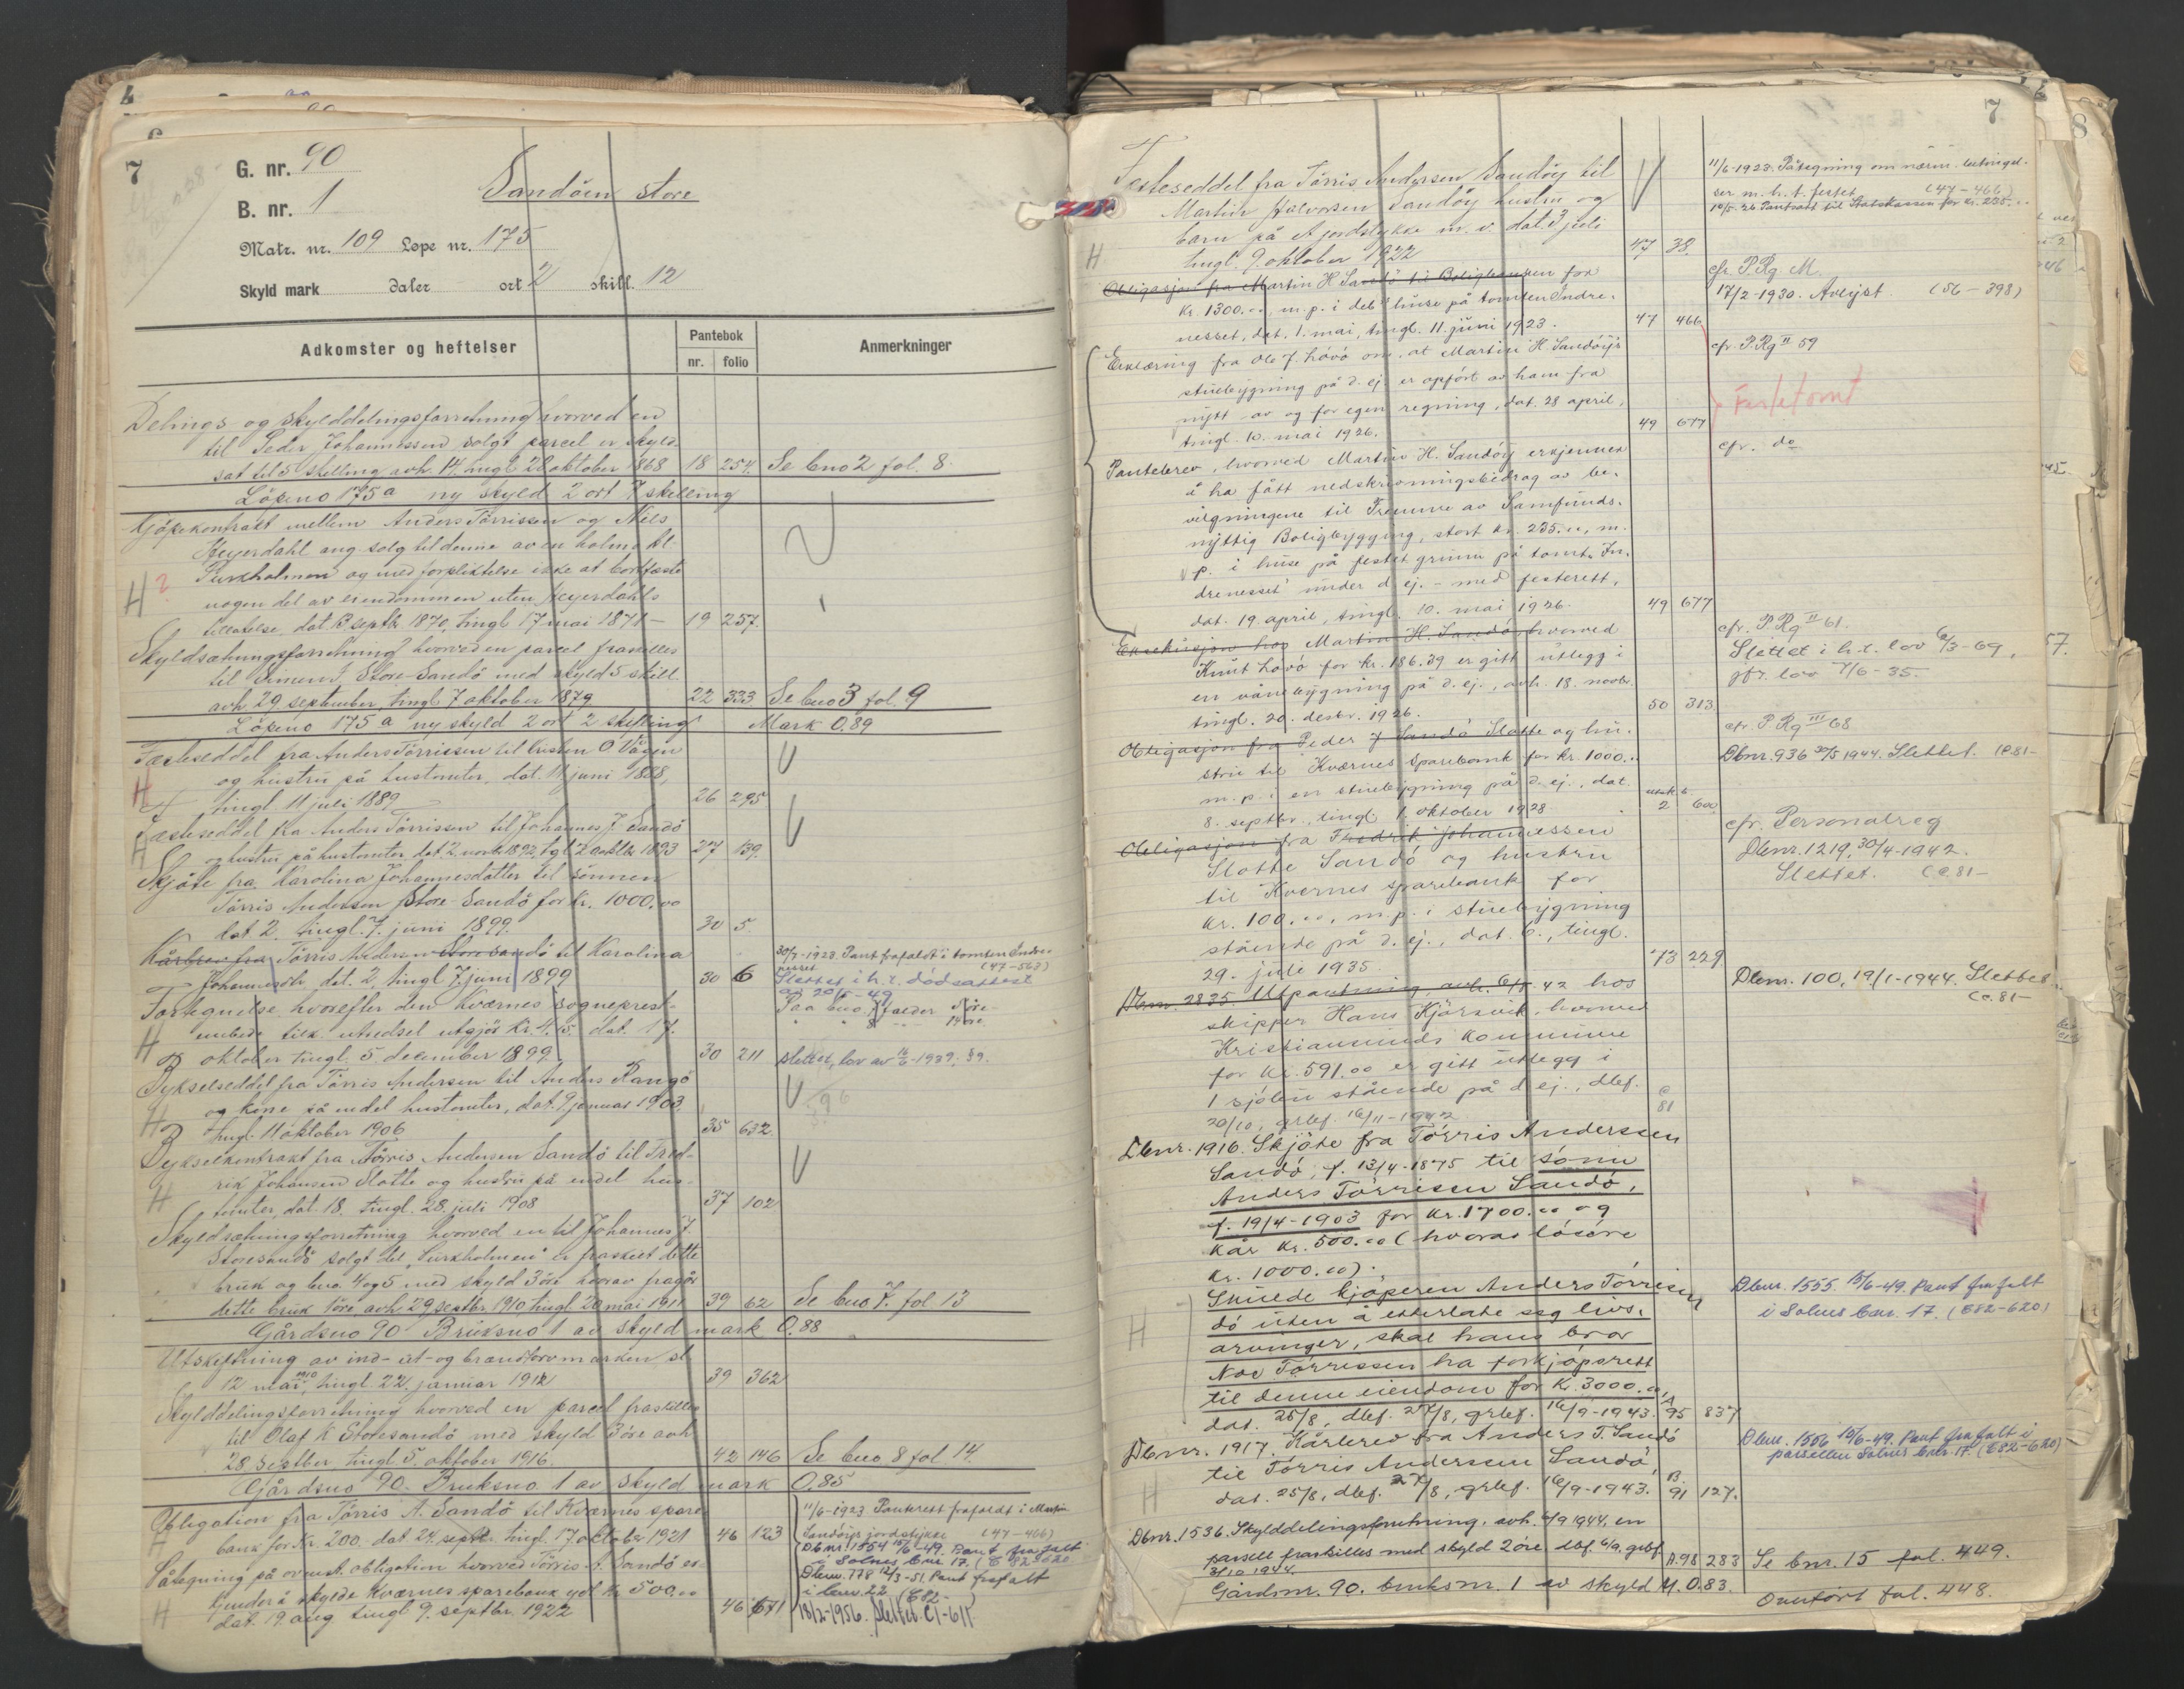 7
G. nr. 90
B. nr. 1
Sandöen store
Matr. nr. 109 Løpe nr. 175
Skyld mark daler ort 2 skill. 12
Adkomster og heftelser
Pantebok
nr. folio
Anmerkninger
Delings og skylddelingsforretning hvorved en
til Peder Johannessen solgt parcel er skyld-
sat til 5 skilling avh. 14, tingl. 28 oktober 1868 18 254. Se bno 2 fol. 8.
Löpeno 175a ny skyld 2 ort 7 skelling
Kjöpekontrakt mellem Anders Törrissen og Niels
Heyerdahl ang. salg til denne av en holme kl.
Purkholmen og med forpliktelse ikke at bortfæste
nogen del av eiendommen uten Heyerdahls
H ?
tillatelse, dat. 13 septbr 1870, tingl 17 mai 1871 – 19 257.
Skyldsætningsforretning hvorved en parcel fraskilles
til Simen J. Store-Sandö med skyld 5 skill
avh. 29 september, tingl. 7 oktober 1879 22 333 Se bno 3 fol. 9
Löpeno 175a ny skyld 2 ort 2 skelling Mark 0,89
Fæsteseddel fra Anders Törrissen til Kristen O. Vågen
og hustru på hustomter, dat. 11 juni 1888,
H
tingl. 11 juli 1889 26 295
Fæsteseddel fra Anders Törrissen til Johannes J. Sandö
H
og hustru på hustomter dat. 2 novbr 1892, tgl. 2 oktbr 1893 27 139.
Skjöte fra Karolina Johannesdatter til sönnen
Törris Andersen Store-Sandö for Kr. 1000.00
dat 2. tingl. 7. juni 1899. 30 5.
Kårbrev fra Törris Andersen Store Sandö til Karolina
Johannesdtr. dat. 2, tingl. 7 juni 1899 30 6
30/7-1923. Pant frafaldt i tomten Indre-
nesset (47-563)
Slettet i h. t. dödsattest
av 20/5-49
Fortegnelse hvorefter den Kværnes sogneprest-
embede tilk. utredsel utgjör Kr. 4.15. dat. 17.
H
oktober tingl. 5 december 1899. 30 211 slettet, lov av 16/6-1939, §9.
Bykselseddel fra Törris Andersen til Anders Rangö
og kone på endel hustomter, dat. 9 januar 1903
H
tingl. 11 oktober 1906 35 632
Bykselkontrakt fra Törris Andersen Sandö til Fred-
rik Johansen Slotte og hustru på endel hus-
H
tomter, dat. 18. tingl. 28. juli 1908 37 102
Skyldsætningsforretning hvorved en til Johannes J.
Storesandö solgt del „Purkholmen" er fraskilt dette
bruk og bno. 4 og 5 med skyld 3 öre hvorav fragår
dette bruk 1 öre, avh. 29 septbr. 1910 tingl. 20 mai 1911 39 62 Se bno 7. fol 13
Gårdsno 90 Bruksno 1 av skyld mark 0,88
Utskiftning av ind- ut- og brændtorvmarken sl.
12 mai 1910, tingl. 22. januar 1912 39 362
Skylddelingsforretning hvorved en parcel fraskilles
til Olaf K Storesandö med skyld 3 öre avh
28 septbr tingl. 5. oktober 1916. 42 146 Se bno 8 fol 14.
Gårdsno 90. Bruksno. 1 av skyld mark 0,85
Obligation fra Törris A. Sandö til Kværnes spare-
H
bank for Kr 200. dat 24. septbr. tingl. 17 oktober 1921 46 123
11/6-1923 Panterett frafaldt i Martin
Sandöys jordstykke (47-466)
Dbnr. 1554 15/6-49. Pant frafalt
i Solnes bnr 17. (C 82-620
Dbnr. 778 12/3-51 Pant frafalt
i bnr. 22 (C82-
Påtegning på ovenst. obligation hvorved Törris A. Sandö er-
kjender å skylde Kværnes sparebank yd. Kr 500.00
H
dat. 19 aug tingl 9. septbr. 1922 46 671 18/2-1956. Slettet C1-611
7
Festeseddel fra Törris Andersen Sandöy til
Martin Halvorsen Sandöy hustru og
barn på et jordstykke m. v. dat. 3 juli
H
tingl. 9. oktober 1922 47 38.
11/6-1923. Påtegning om nærm. betingel-
ser m. h. t. festet (47-466)
10/5-26 Pantsatt til Statskassen for kr. 235..
Obligasjon fra Martin H Sandö til Boligbanken for
kr. 1300.00, m. p. i deb's huse på tomten Indre-
nesset, dat. 1. mai, tingl. 11. juni 1923. 47 466
cfr P.Rg M.
17/2-1930. Avlyst. (56-398)
Erklæring fra Ole J. Hövö om, at Martin H Sandöy's
stuebygning på d. ej. er opfört av ham fra
nytt av og for egen regning, dat. 28 april,
tingl. 10. mai 1926. 49 677
cfr. P.Rg II 59
Festetomt
Pantebrev, hvorved Martin H. Sandöy erkjenner
å ha fått nedskrivningsbidrag av be-
vilgningene til Fremme av Samfunds-
nyttig Boligbygging, stort kr. 235.00, m.
p. i huse på festet grunn på tomt. In-
drenesset under d ej. – med festerett,
dat. 19. april, tingl. 10. mai 1926. 49 677
cfr. do
cfr. P.Rg II 61.
Eksekusjon hos Martin H. Sandö, hvorved
Knut Hövö for kr. 186.39 er gitt utlegg i
en våningsbygning på d. ej., avh. 18. novbr.
tingl. 20. desbr. 1926. 50 313
Slettet i h. t. lov 6/3-69,
jfr. lov 7/6-35.
Obligasjon fra Peder J Sandö Slotte og hu-
stru til Kværnes Sparebank for kr. 1000..
m. p. i en stuebygning på d. ej., dat.
8. septbr., tingl. 1. oktober 1928. 2 600
cfr. P.Rg III 68
Dbnr. 936 30/5 1944. Slettet. (C81-
Obligasjon fra Fredrik Johannessen
Slotte Sandö og hustru
til Kvernes sparebank for
kr. 100.00, m. p. i stuebygning
stående på d. ej., dat. 6., tingl.
29. juli 1935. 73 229
cfr. Personalreg
Dbnr. 1219, 30/4-1942.
Slettet. (C.81-
Dbnr 2835. Utpantning avh. 6/8 42 hos
skipper Hans Kjörsvik, hvorved
Kristiansunds kommune
for kr. 591.00 er gitt utlegg i
1 sjöbu stående på d ej., dbf.
20/10, grbf. 16/11-1942 C 81
Dbnr. 100, 19/1-1944. Slettet.
(C.81-
Dbnr. 1916. Skjöte fra Törris Anderssen
Sandö, f. 13/4-1875 til sönn
Anders Törrissen Sandö,
f. 19/4-1903 for kr. 1700.00 og
kår kr. 500.00 (hvorav lösöre
kr. 1000.00).
Skulde kjöperen Anders Törrissen
dö uten å etterlate seg livs-
arvinger, skal hans bror
H
Nov Törrissen ha forkjöpsrett
til denne eiendom for kr. 3000.00,
dat. 25/8, dbf. 27/8, grbf. 16/9-1943. A 95 837
Dbnr. 1555. 15/6-49. Pant frafalt
i Solnes bnr. 17. (C82-620)
Dbnr. 1917. Kårbrev fra Anders T. Sandö
til Törris Anderssen Sandö,
H
dat. 25/8, dbf. 27/8, grbf. 16/9-1943. B. 91 127.
Dbnr. 1556 15/6-49. Pant frafalt i
parsellen Solnes bnr. 17. (C82-620)
Dbnr. 1536. Skylddelingsforretning, avh. 4/9 1944, en
parsell fraskilles med skyld 2 öre. dbf. 6/9, grbf.
3/10 1944. A.98 283 Se bnr. 15 fol. 449.
Gårdsnr. 90. bruksnr. 1 av skyld M. 0.83.
Overfört fol. 448.
8